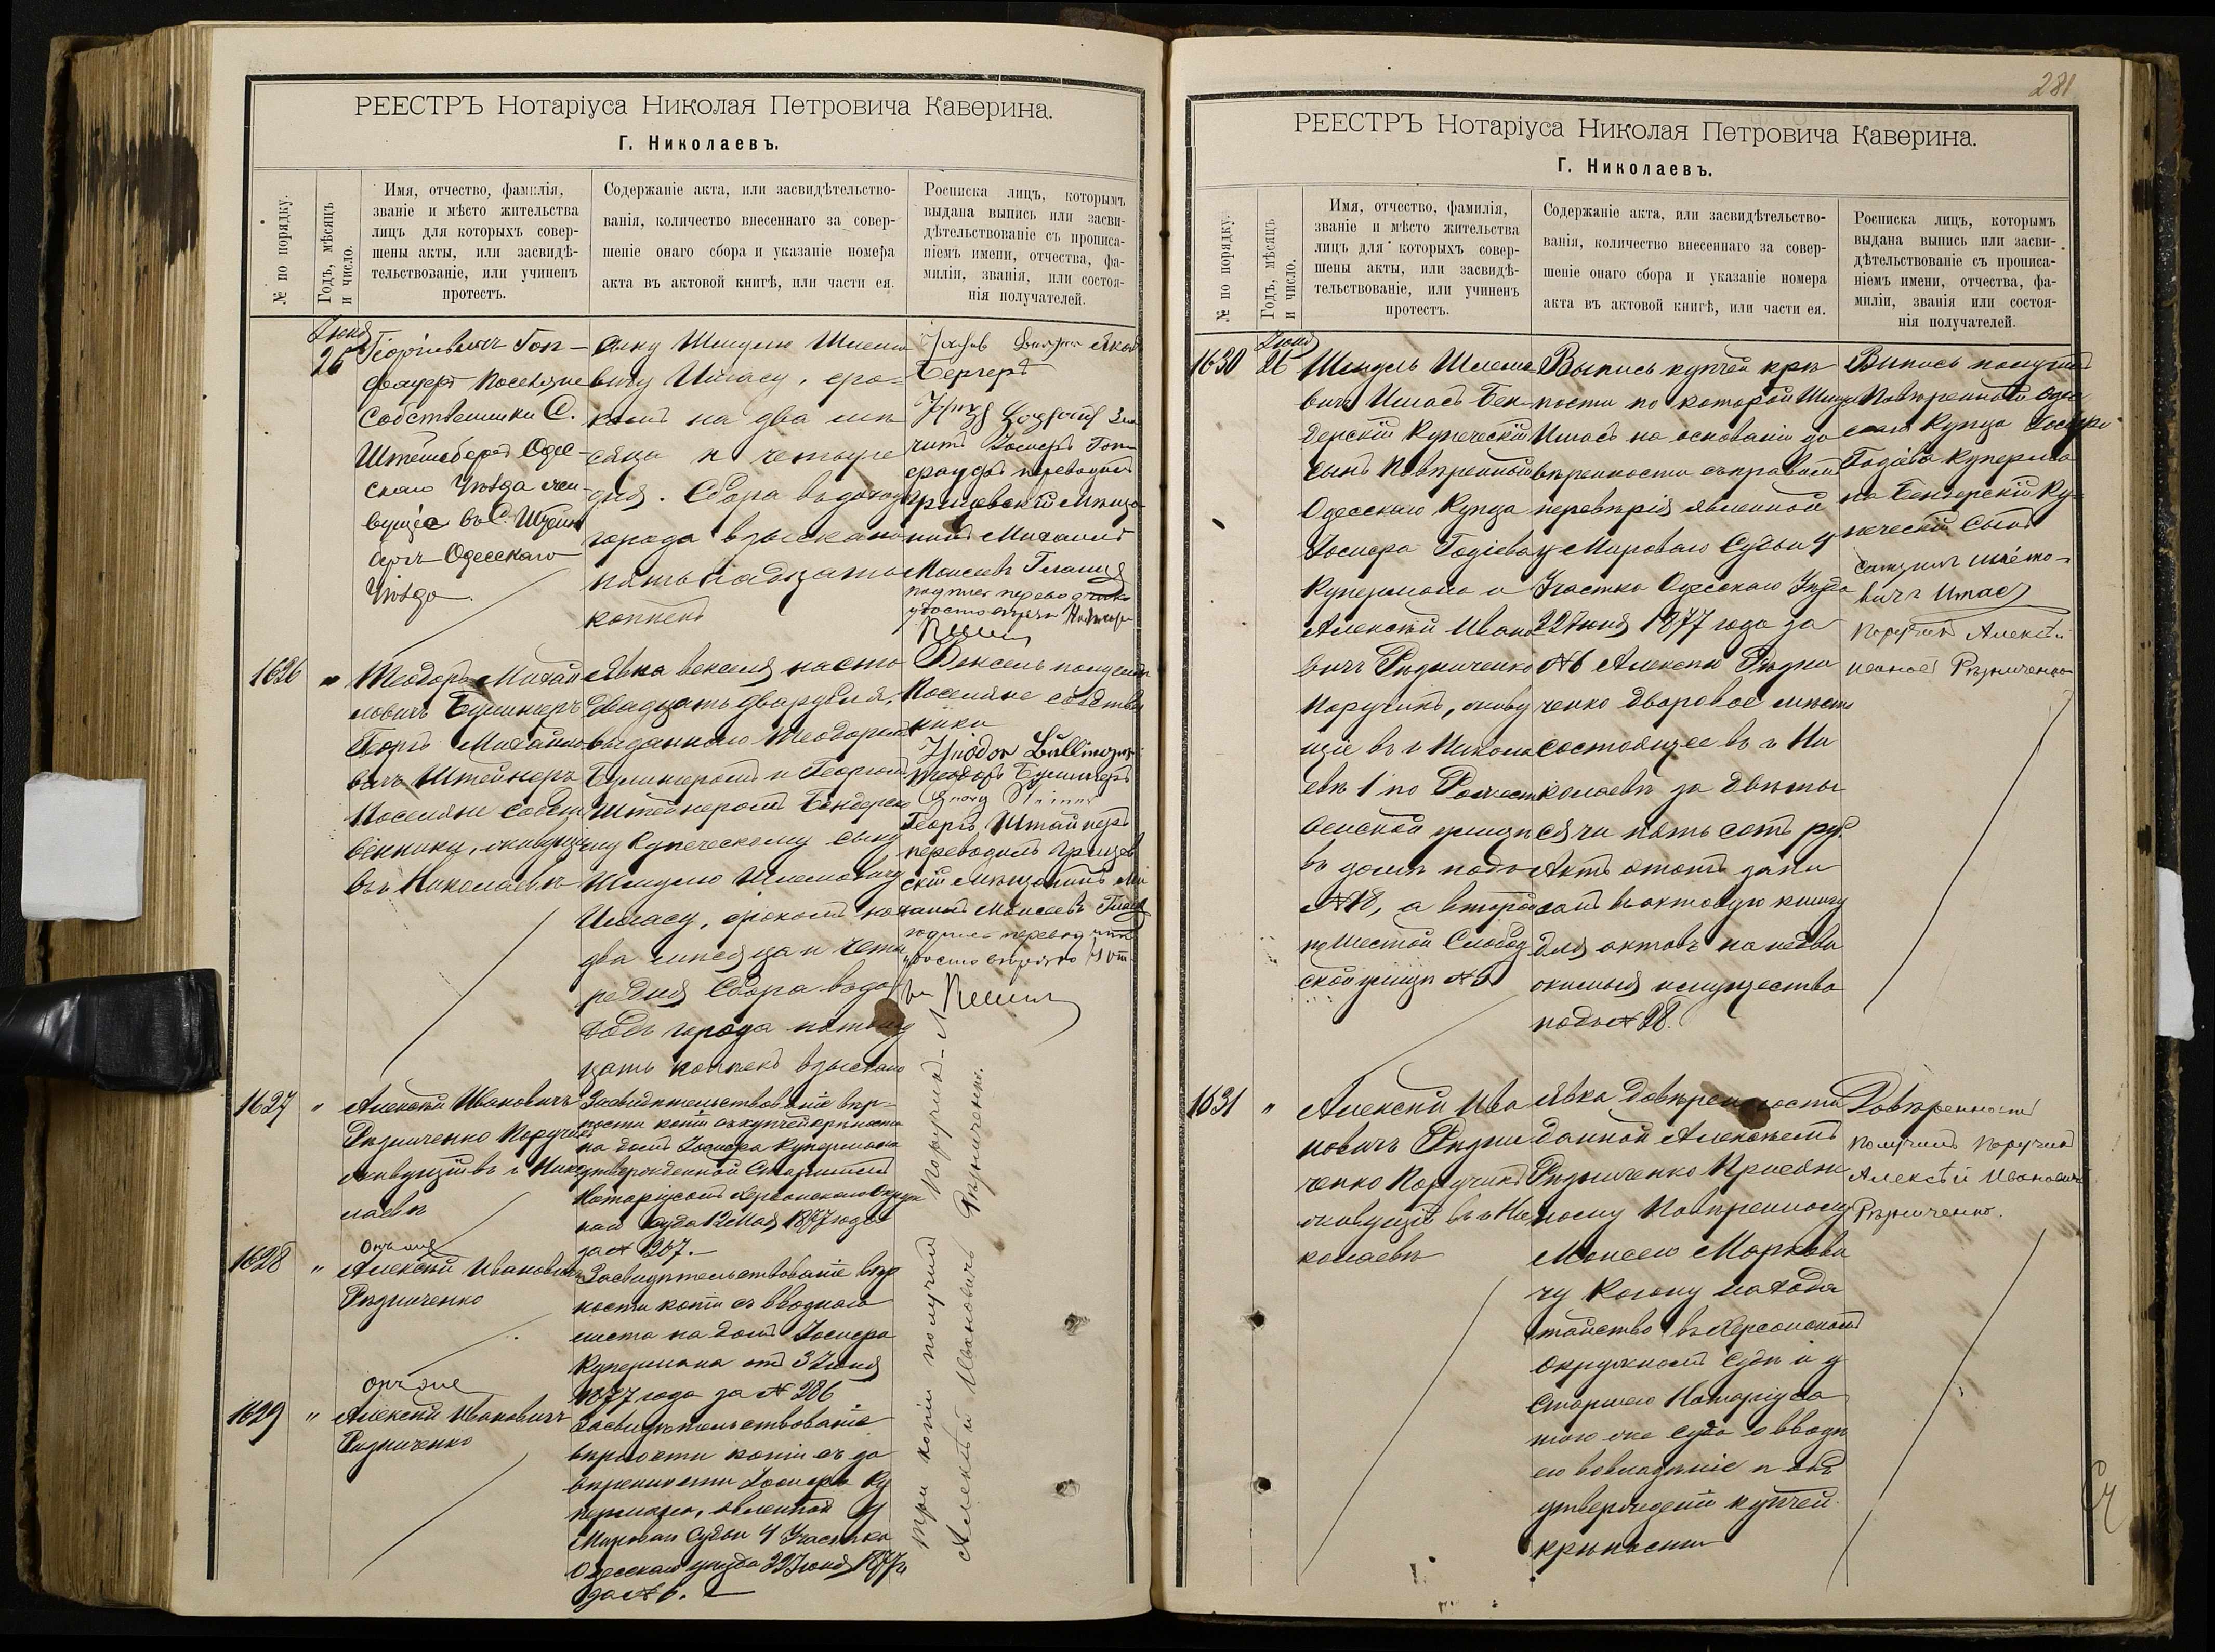 РЕЕСТРЪ Нотаріуса Николая Петровича Каверина.
Г. Николаевъ.
№ по порядку.
Годъ, мѣсяцъ
и число.
Имя, отчество, фамилія,
званіе и мѣсто жительства
лицъ для которыхъ совер-
шены акты, или засвидѣ-
тельствованіе, или учиненъ
протестъ.
Содержаніе акта, или засвидѣтельство-
ванія, количество внесеннаго за совер-
шеніе онаго сбора и указаніе номера
акта въ актовой книгѣ, или части ея.
Росписка лицъ, которымъ
выдана выпись или засви-
дѣтельствованіе съ прописа-
ніемъ имени, отчества, фа-
миліи, званія, или состоя-
нія получателей.
Іюня
26
Георгіевичъ Гоп-
Поселяне
Собственники С.
Одес-
скаго Уѣзда жи-
вущіе въ С.
Одесскаго
Уѣзда.
Шмулю Шлемо
вичу Имасу, сро-
комъ на два мѣ-
сяца и четыре
дня. Сбора въ доходъ
города взыскано
пятьнадцать
копѣекъ
Бергеръ
переводилъ
мѣща-
нинъ Михаилъ
Моисеевъ
подпись переводчика
1626
"
Теодоръ Михай
ловичъ Булингеръ
Георгъ Михайло
вичъ Штейнеръ
Поселяне Собст
венники, живущіе
въ Николаевѣ
Явка векселя на сто
двадцать два рубля,
выданнаго Теодоромъ
Булингеромъ и Георгомъ
Штейнеромъ Бендерско
му Купеческому сыну
Шмулю Шлемовичу
Имасу, срокомъ на
два мѣсяца и четы
ре дня Сбора въ до
ходъ города пятьнад
цать копѣекъ взыскано
Вексель получили
Поселяне собствен
ники
Теодоръ Булингеръ
Георгъ Штайнеръ
переводилъ
скій Мѣщанинъ Ми
хаилъ Моисеевъ
1627
"
Алексѣй Ивановичъ
Рѣзниченко Поручикъ
живущій въ г. Нико
лаевѣ
Засвидѣтельствованіе вѣр-
ности копіи съ купчей крѣпости
на домъ Іосифа Купермана
утвержденной Старшимъ
Нотаріусомъ Херсонскаго Окруж
наго Суда 12 Мая 1877 года
за № 267.
1628
"
Онъ же
Алексѣй Ивановичъ
Рѣзниченко
Засвидѣтельствованіе вѣр
ности копіи съ вводнаго
листа на домъ Іосифа
Купермана отъ 3 Іюня
1877 года за № 286
1629
"
Онъ же
Алексѣй Ивановичъ
Рѣзниченко
Засвидѣтельствованіе
вѣрности копіи съ до
вѣренности Іосифа Ку
пермана, явленной у
Мироваго Судьи 4 Участка
Одесскаго уѣзда 22 Іюня 1877 г.
за № 6.
Три копіи получилъ Поручикъ
Алексѣй Ивановичъ Рѣзниченко.
281
РЕЕСТРЪ Нотаріуса Николая Петровича Каверина.
Г. Николаевъ.
№ по порядку.
Годъ, мѣсяцъ
и число.
Имя, отчество, фамилія,
званіе и мѣсто жительства
лицъ для которыхъ совер-
шены акты, или засвидѣ-
тельствованіе, или учиненъ
протестъ.
Содержаніе акта, или засвидѣтельство-
ванія, количество внесеннаго за совер-
шеніе онаго сбора и указаніе номера
акта въ актовой книгѣ, или части ея.
Росписка лицъ, которымъ
выдана выпись или засви-
дѣтельствованіе съ прописа-
ніемъ имени, отчества, фа-
миліи, званія или состоя-
нія получателей.
1630
Іюня
26
Шмуль Шлемо
вичъ Имасъ Бен
дерскій Купеческій
сынъ Повѣренный
Одесскаго Купца
Купермана и
Алексѣй Ивано
вичъ Рѣзниченко
Поручикъ, живу
щіе въ г. Никола
евѣ 1 по Рождест
венской улицѣ
въ домѣ подъ
№ 18, а второй
по Шестой Слобод
ской улицѣ № 6
Выпись купчей крѣ
пости по которой Шмуль
Имасъ на основаніи до
вѣренности съ правомъ
перевѣрія явленной
у Мироваго Судьи 4
Участка Одесскаго Уѣзда
22 Іюня 1877 года за
№ 6 Алексѣю Рѣзни
ченко дворовое мѣсто
состоящее въ г. Ни
колаевѣ за двѣ ты
сячи пять сотъ руб.
Актъ этотъ запи
санъ въ актовую книгу
для актовъ на недви
жимыя имущества
подъ № 28.
Выпись получилъ
Повѣренный Одес
скаго Купца
Купермана
Бендерскій Ку-
печескій Сынъ
Имасъ
Поручикъ Алексѣй
Рѣзниченко
1631
"
Алексѣй Ива
новичъ Рѣзни
ченко Поручикъ
живущій въ г. Ни
колаевѣ
Явка довѣренности
данной Алексѣемъ
Рѣзниченко Присяж
ному Повѣренному
Моисею Маркови
чу Когону на хода
тайство въ Херсонскомъ
Окружномъ Судѣ и у
Старшаго Нотаріуса
того же Суда о вводѣ
его во владѣніе и объ
утвержденіи купчей
крѣпости
Довѣренность
получилъ Поручикъ
Алексѣй Ивановичъ
Рѣзниченко.